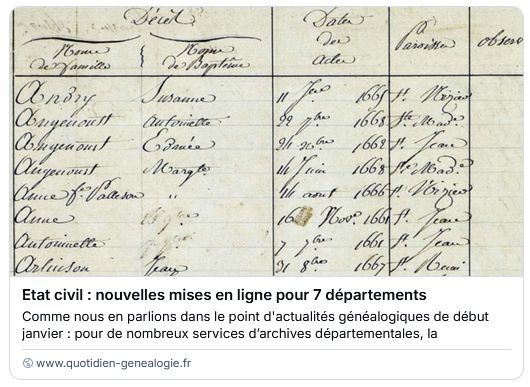 Décès
Dates
des
Actes
Noms
de famille
Noms
de Baptême
Paroisses
observ
Andry Susanne 11 1665 St. Nizier
Angenoust Antoinette 22 7bre 1668 Ste Madne
Angenoust Edmée 24 1668 St. Jean
Angenoust Margte 14 Juin 1668 Ste Madne
Anne fe. Patteson " 14 aout 1666 St. Nizier
Anne 16 Novre 1661 St. Jean
Antoinette 7 7bre 1661 St. Jean
Arluison Jean 31 8bre 1667 St. Remi
Etat civil : nouvelles mises en ligne pour 7 départements
Comme nous en parlions dans le point d'actualités généalogiques de début
janvier : pour de nombreux services d'archives départementales, la
www.quotidien-genealogie.fr